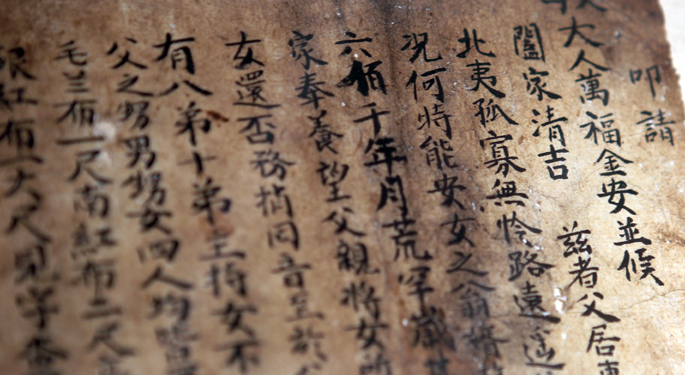 叩請
大人萬福金安並候
闔家清吉 茲者父居
北夷孤寡無怜路遠
況何時能安女之翁
六佰千年月荒罕歲
家奉養望父親將女
女還否務捎回音至於
有八弟十弟主持女不
父之甥男甥女四人均
毛兰布一尺南紅布二尺
紅布一大尺